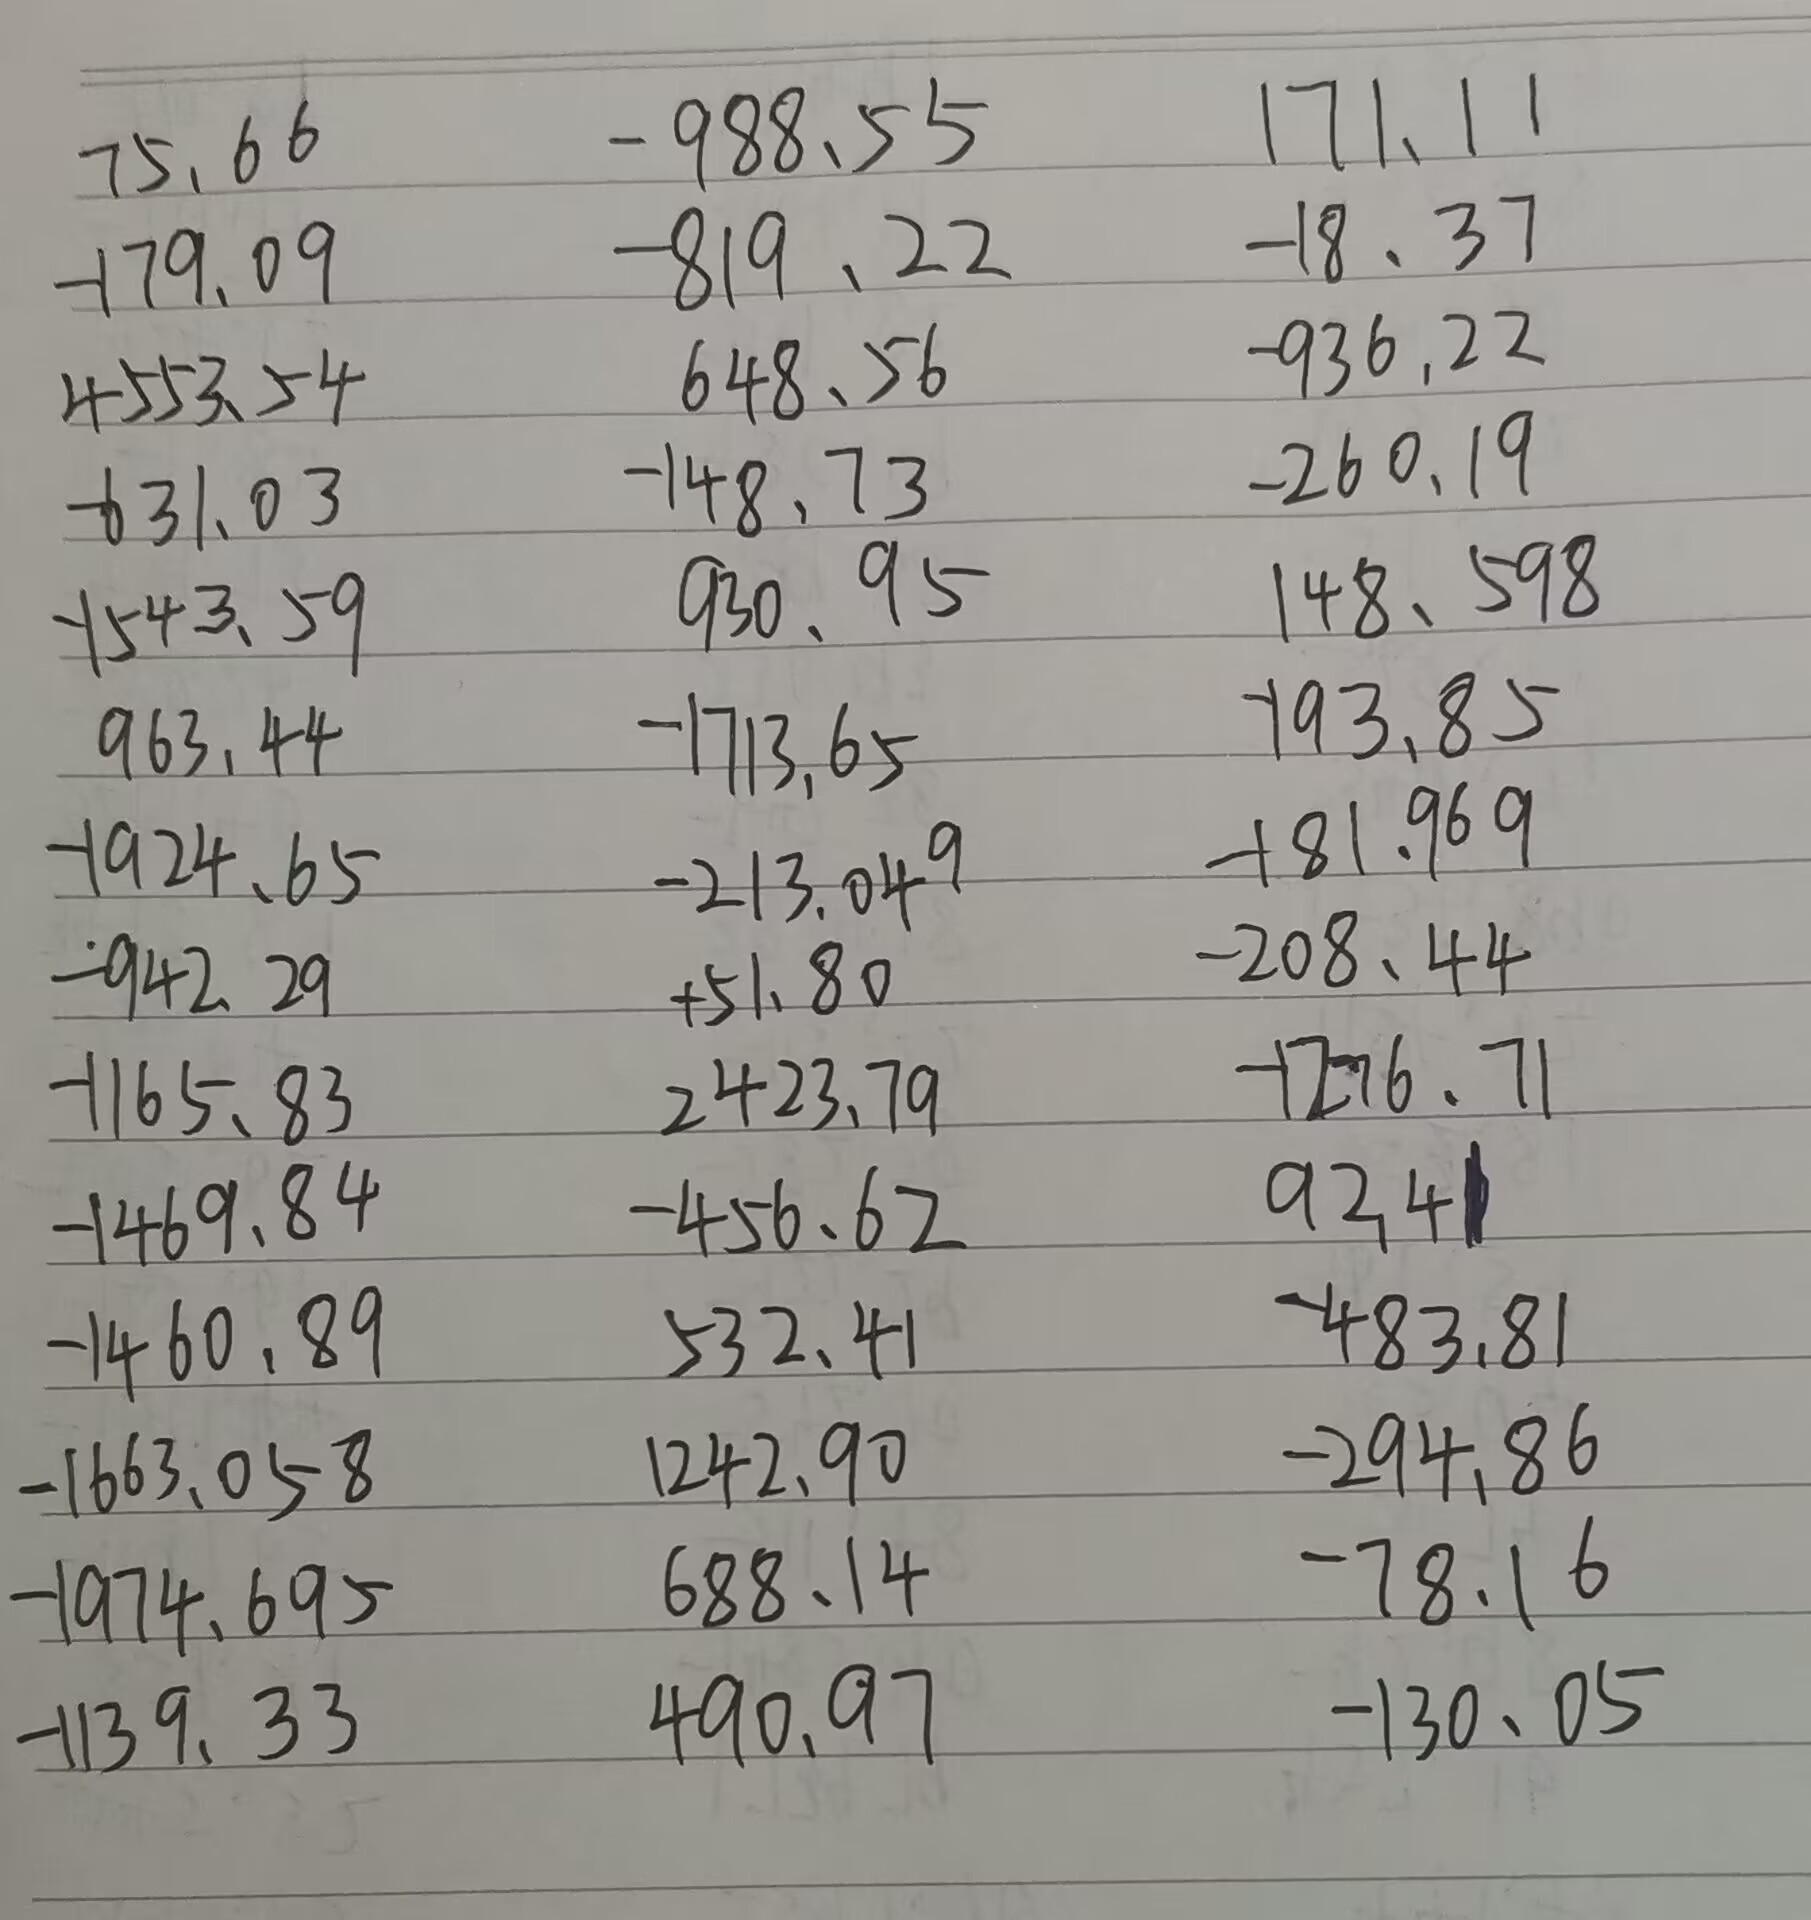 75.66 -988.55 171.11
-179.09 -819.22 -18.37
4553.54 648.56 -936.22
-631.03 -148.73 -260.19
-1543.59 930.95 148.598
963.44 -1713.65 -193.85
-1924.65 -213.049 -181.969
-942.29 +51.80 -208.44
-1165.83 2423.79
-1469.84 -456.62 92.4
-1460.89 532.41 -483.81
-1663.058 1242.90 -294.86
-1974.695 688.14 -78.16
-1139.33 490.97 -130.05